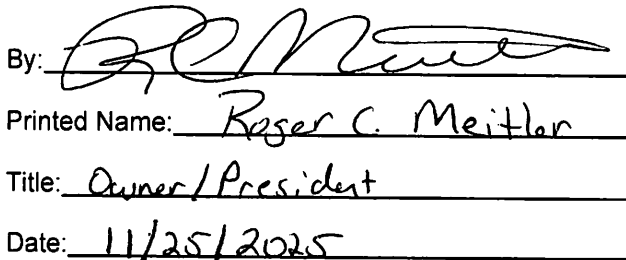 By:
Printed Name: Roger C. Meitler
Title: Owner/President
Date: 11/25/2025